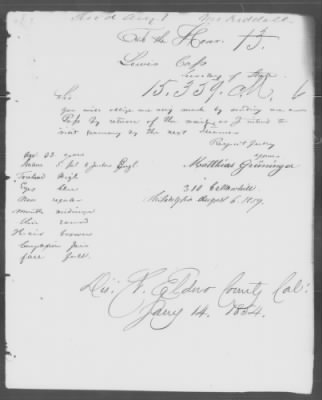 To the Honor.
Lewis Cass
Secretary of State
15,339. 
Sir.
You will oblige me very much by sending me a
Pass by return of the mail, as I intend to
visit Germany by the next Steamer
Respectfully
yours
Matthias Grüninger
310 Callowhill
Philadelphia August 6. 1859.
Age 33 years
Statur 5 fut 9 Inches Engl.
Forehead High
Eyes blue
Nose regular
Mouth midding
Chin round
Hair brown
Complexion fair
face full.
Dis: Ct. Eldoro County Cal:
Jany 14. 1854.